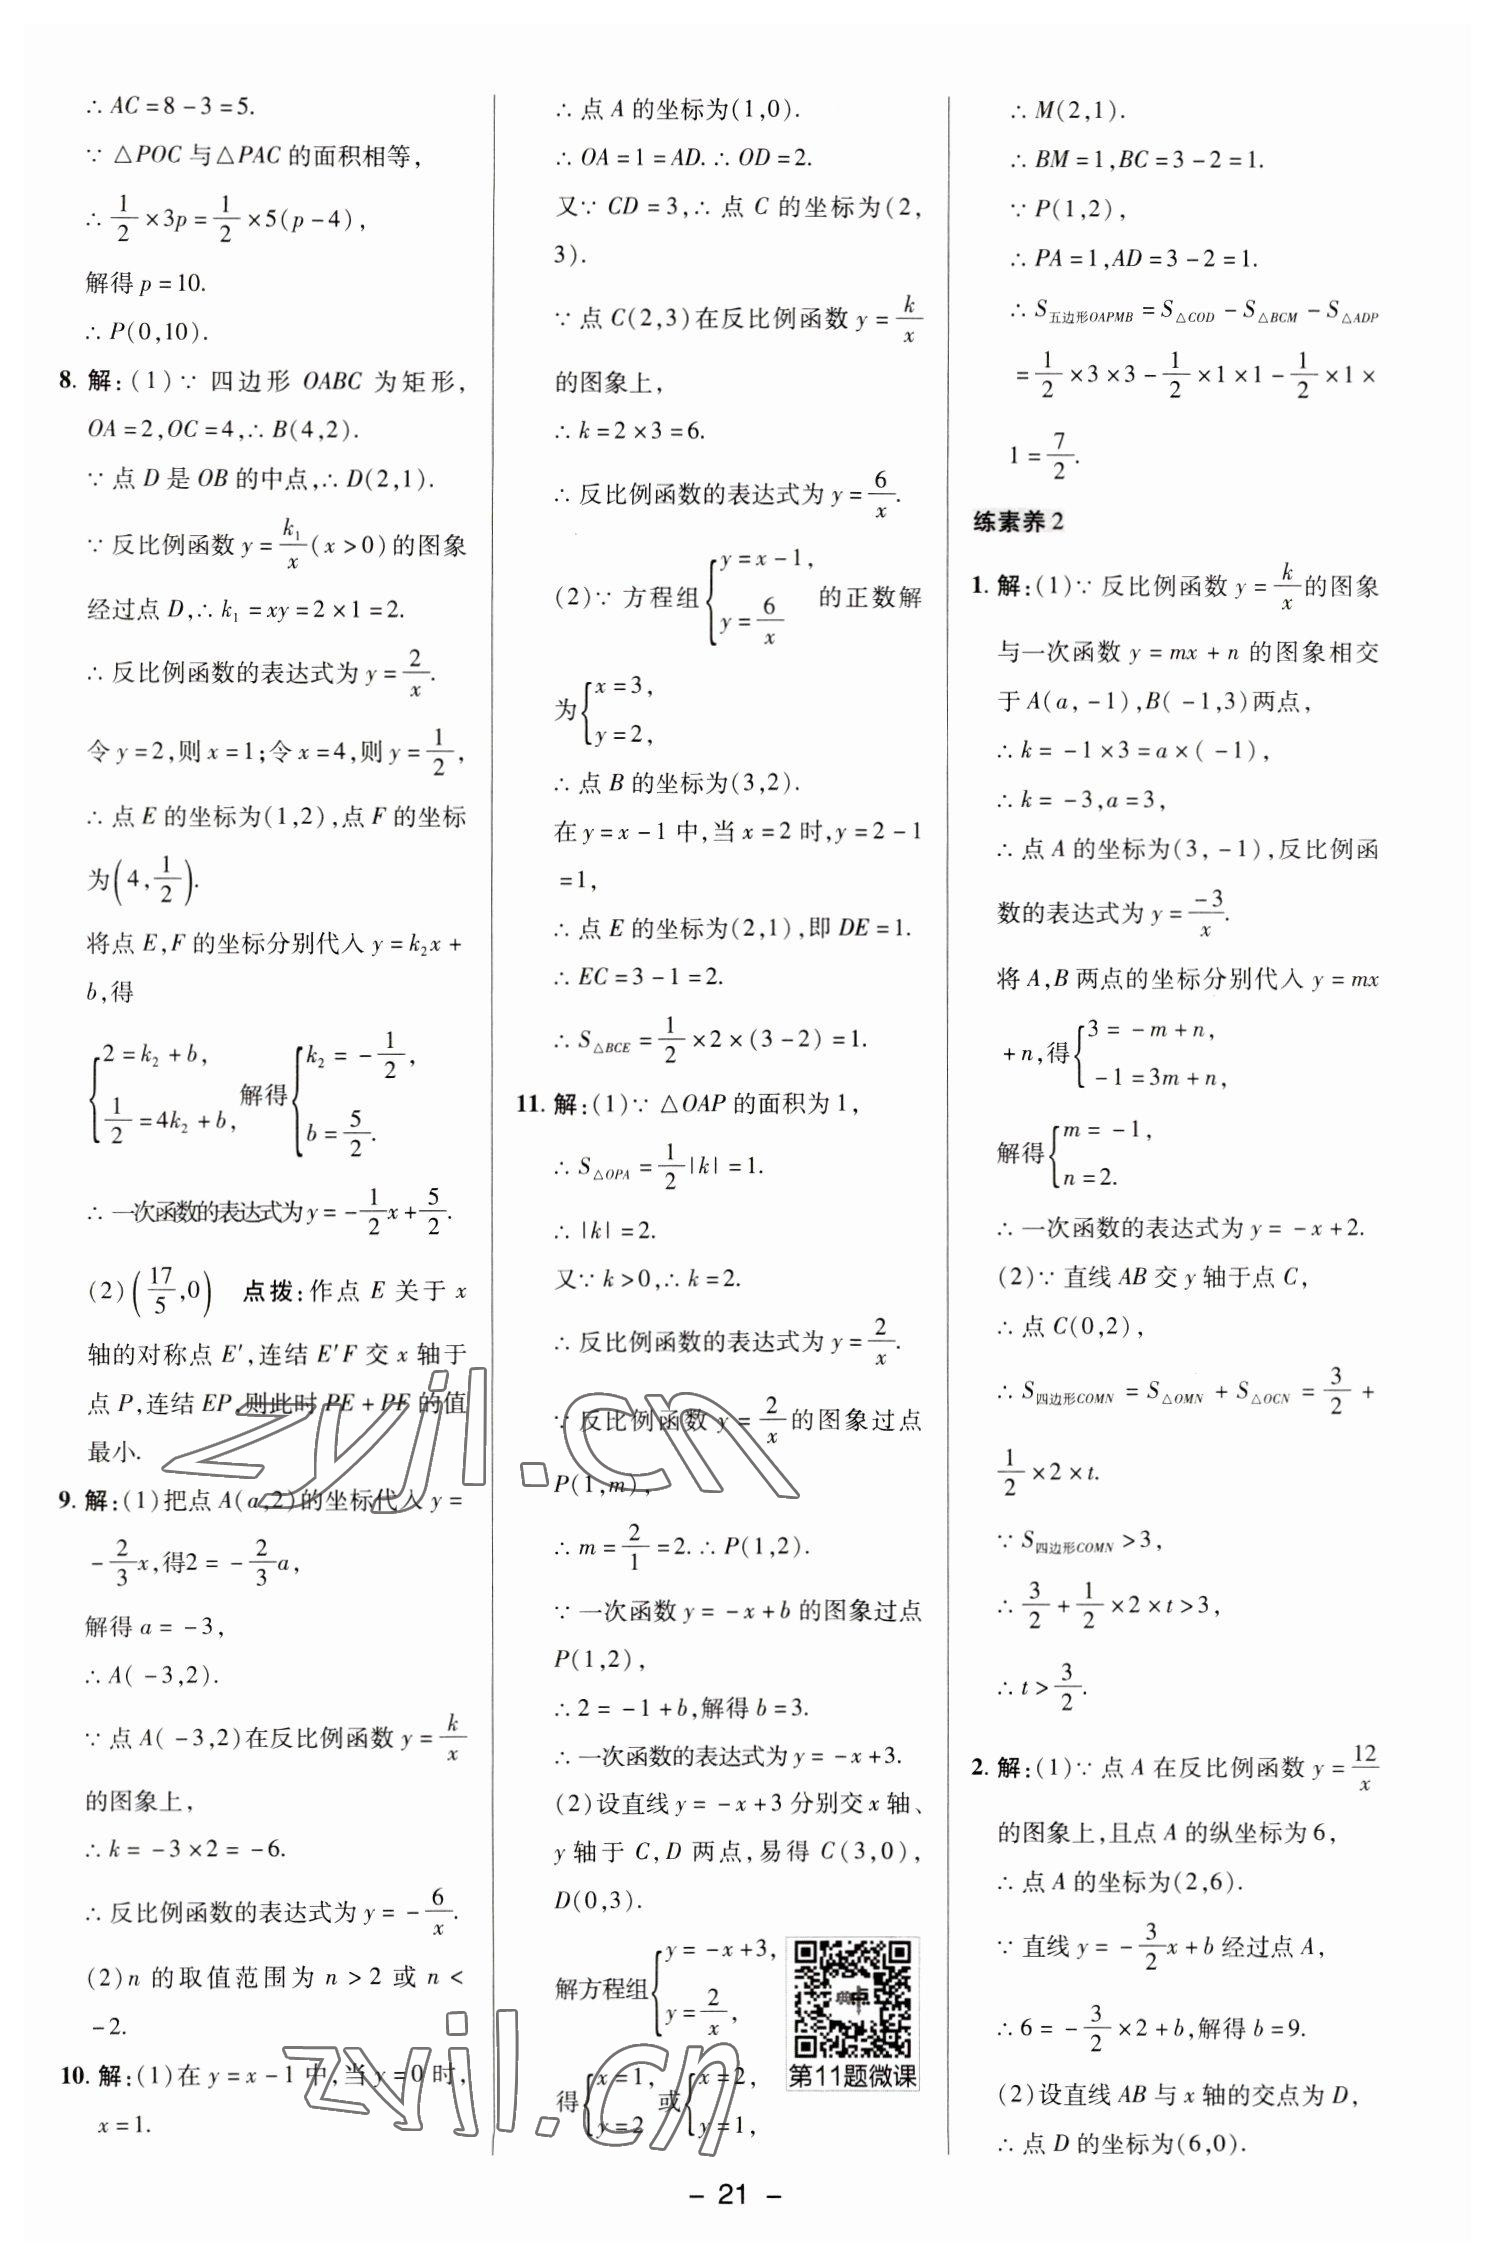 ∴ AC=8-3=5.
∵ △POC与△PAC的面积相等,
∴ 1/2×3p=1/2×5(p-4),
解得p=10.
∴ P(0,10).
8. 解:(1)∵ 四边形 OABC 为矩形,
OA=2,OC=4,∴ B(4,2).
∵ 点 D 是 OB 的中点,∴ D(2,1).
∵ 反比例函数 y=k₁/x(x>0)的图象
经过点 D,∴ k₁=xy=2×1=2.
∴ 反比例函数的表达式为 y=2/x.
令 y=2,则 x=1;令 x=4,则 y=1/2,
∴ 点 E 的坐标为(1,2),点 F 的坐标
为(4,1/2).
将点 E,F 的坐标分别代入 y=k₂x+
b,得
{2=k₂+b, 1/2=4k₂+b, 解得{k₂=-1/2, b=5/2.
∴ 一次函数的表达式为y=-1/2x+5/2.
(2)(17/5,0) 点拨:作点 E 关于 x
轴的对称点 E′,连结 E′F 交 x 轴于
点 P,连结 EP,则此时 PE+PF 的值
最小.
9. 解:(1)把点 A(a,2)的坐标代入 y=
-2/3x,得2=-2/3a,
解得 a=-3,
∴ A(-3,2).
∵ 点 A(-3,2)在反比例函数 y=k/x
的图象上,
∴ k=-3×2=-6.
∴ 反比例函数的表达式为 y=-6/x.
(2)n 的取值范围为 n>2 或 n<
-2.
10. 解:(1)在 y=x-1 中,当 y=0 时,
x=1.
∴ 点 A 的坐标为(1,0).
∴ OA=1=AD.∴ OD=2.
又∵ CD=3,∴ 点 C 的坐标为(2,
3).
∵ 点 C(2,3)在反比例函数 y=k/x
的图象上,
∴ k=2×3=6.
∴ 反比例函数的表达式为 y=6/x.
(2)∵ 方程组{y=x-1, y=6/x 的正数解
为{x=3, y=2,
∴ 点 B 的坐标为(3,2).
在 y=x-1 中,当 x=2 时,y=2-1
=1,
∴ 点 E 的坐标为(2,1),即 DE=1.
∴ EC=3-1=2.
∴ S△BCE=1/2×2×(3-2)=1.
11. 解:(1)∵ △OAP 的面积为 1,
∴ S△OPA=1/2|k|=1.
∴ |k|=2.
又∵ k>0,∴ k=2.
∴ 反比例函数的表达式为 y=2/x.
∵ 反比例函数 y=2/x 的图象过点
P(1,m),
∴ m=2/1=2.∴ P(1,2).
∵ 一次函数 y=-x+b 的图象过点
P(1,2),
∴ 2=-1+b,解得 b=3.
∴ 一次函数的表达式为 y=-x+3.
(2)设直线 y=-x+3 分别交 x 轴、
y 轴于 C,D 两点,易得 C(3,0),
D(0,3).
解方程组{y=-x+3, y=2/x,
得{x=1, y=2 或{x=2, y=1,
第11题微课
∴ M(2,1).
∴ BM=1,BC=3-2=1.
∵ P(1,2),
∴ PA=1,AD=3-2=1.
∴ S五边形OAPMB=S△COD-S△BCM-S△ADP
=1/2×3×3-1/2×1×1-1/2×1×
1=7/2.
练素养2
1. 解:(1)∵ 反比例函数 y=k/x的图象
与一次函数 y=mx+n 的图象相交
于 A(a,-1),B(-1,3)两点,
∴ k=-1×3=a×(-1),
∴ k=-3,a=3,
∴ 点 A 的坐标为(3,-1),反比例函
数的表达式为 y=-3/x.
将 A,B 两点的坐标分别代入 y=mx
+n,得{3=-m+n, -1=3m+n,
解得{m=-1, n=2.
∴ 一次函数的表达式为 y=-x+2.
(2)∵ 直线 AB 交 y 轴于点 C,
∴ 点 C(0,2),
∴ S四边形COMN=S△OMN+S△OCN=3/2+
1/2×2×t.
∵ S四边形COMN>3,
∴ 3/2+1/2×2×t>3,
∴ t>3/2.
2. 解:(1)∵ 点 A 在反比例函数 y=12/x
的图象上,且点 A 的纵坐标为 6,
∴ 点 A 的坐标为(2,6).
∵ 直线 y=-3/2x+b 经过点 A,
∴ 6=-3/2×2+b,解得 b=9.
(2)设直线 AB 与 x 轴的交点为 D,
∴ 点 D 的坐标为(6,0).
- 21 -
zyjl.cn
zyjl.cn